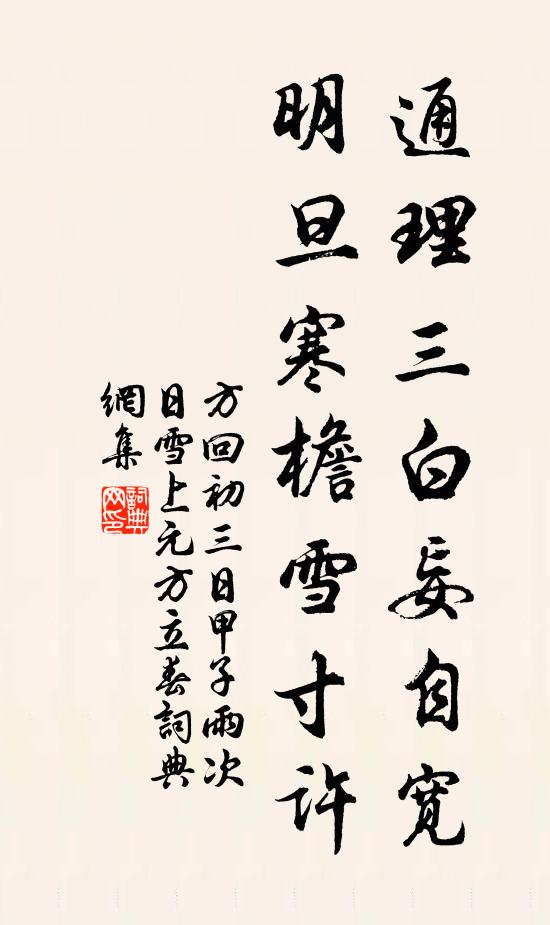 通理三白妄自寬
明旦寒檐雪寸許
方回初三日甲子雨次
日雪上元方立春詞典
網集
詞典
网印